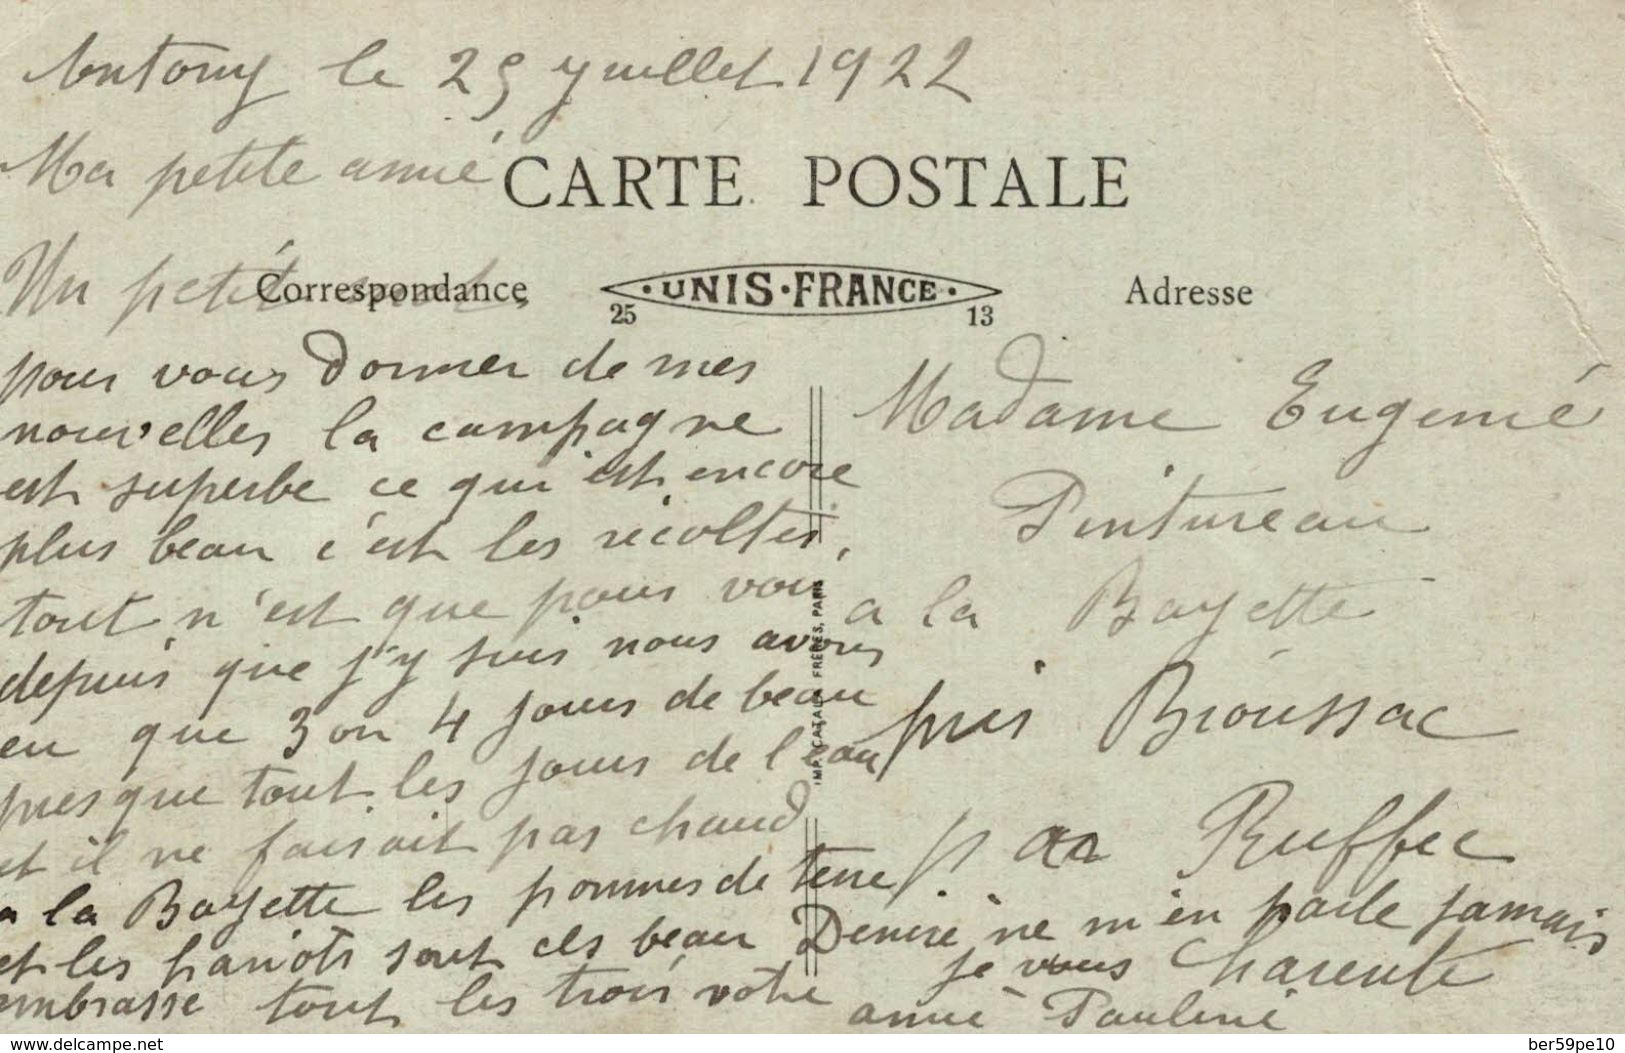 Antony le 25 juillet 1922
Ma petite amie
CARTE POSTALE
Un petit
Correspondance
UNIS-FRANCE
25 13
Adresse
pour vous donner de mes
nouvelles la campagne
est superbe ce qui est encore
plus beau c'est les récoltes,
tout n'est que pour voir
depuis que j'y suis nous avons
eu que 3 ou 4 jours de beau
presque tout les jours de l'eau
et il ne faisait pas chaud
a la Bayette les pommes de terre
et les hariots sont ils beau Denise ne m'en parle jamais
je vous
embrasse tout les trois votre
amie Pauline
Madame Eugenie
Pintureau
a la Bayette
près Brioussac
par Ruffec
Charente
IMP. CATALA FRÈRES, PARIS
www.delcampe.net
ber59pe10